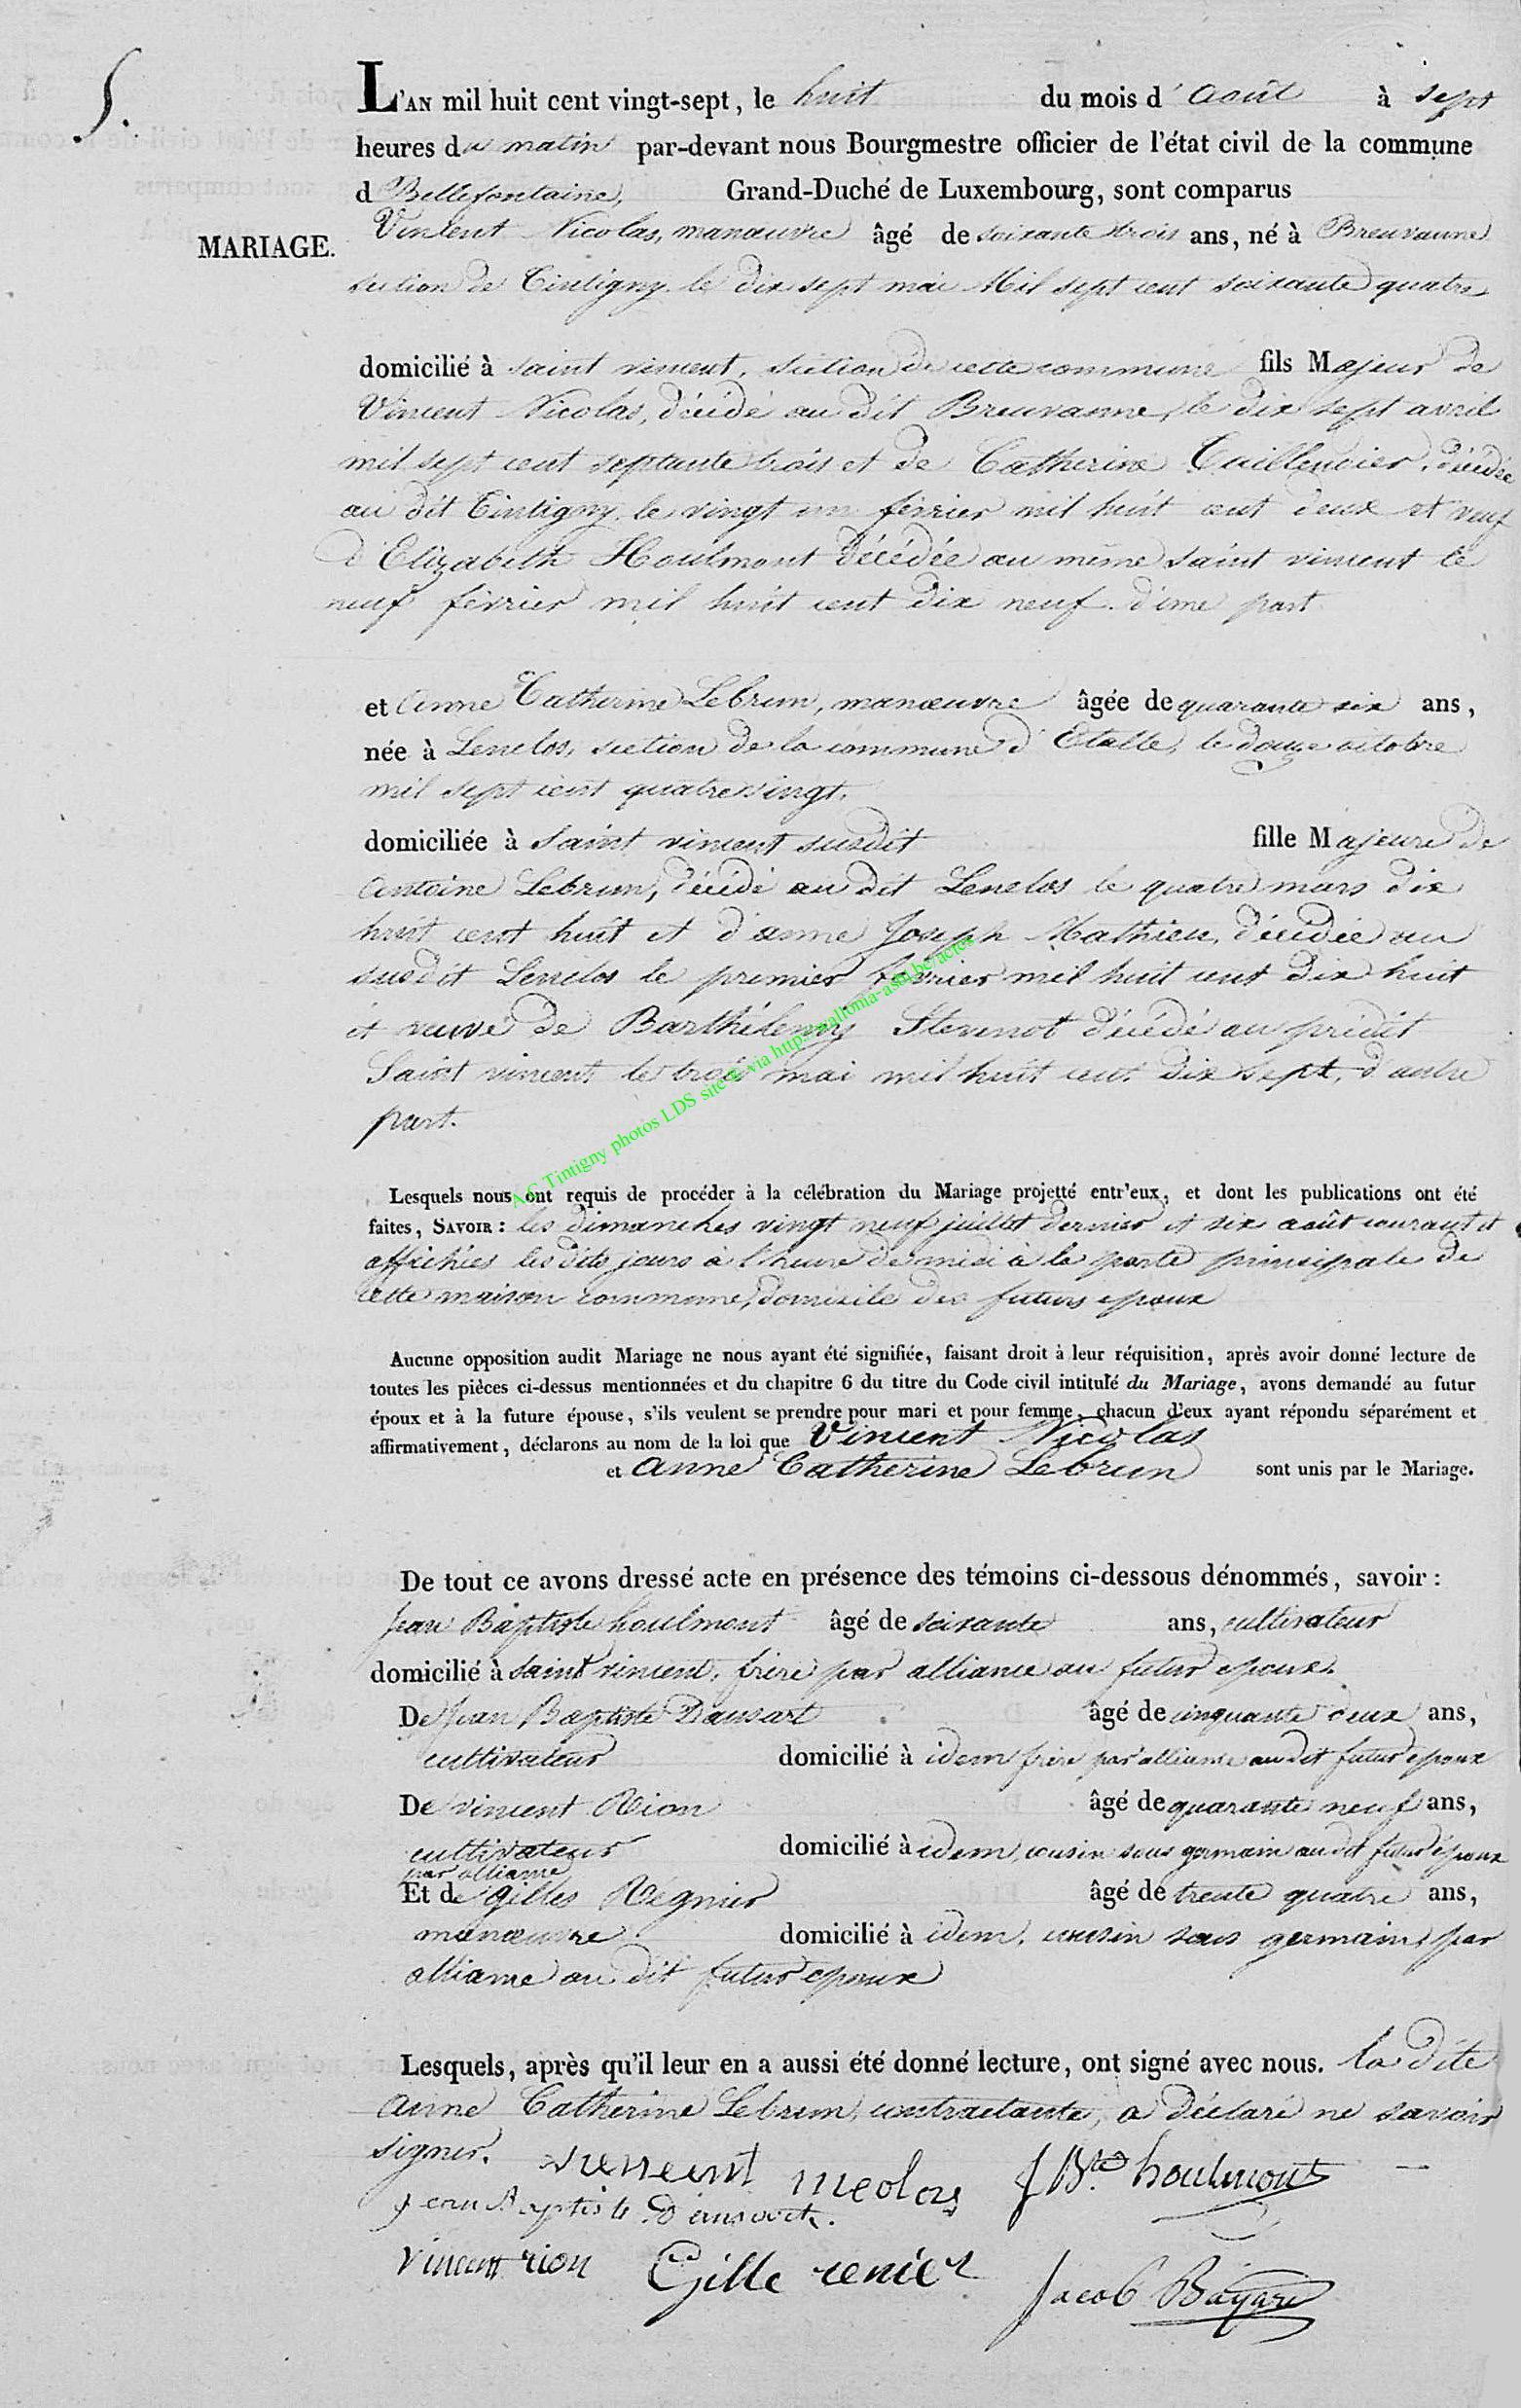 5.
L'AN mil huit cent vingt-sept, le huit du mois d'Août à sept
heures du matin par-devant nous Bourgmestre officier de l'état civil de la commune
d Bellefontaine, Grand-Duché de Luxembourg, sont comparus
MARIAGE.
Vincent Nicolas, manœuvre âgé de soixante trois ans, né à Breuvanne
section de Tintigny le dix sept mai Mil sept cent soixante quatre
domicilié à saint vincent, section de cette commune fils Majeur de
Vincent Nicolas, décédé au dit Breuvanne, le dix sept avril
mil sept cent septante trois et de Catherine décédée
au dit Tintigny le vingt un février mil huit cent deux et veuf
d'Elizabeth Houlmont décédée au même saint vincent le
neuf février mil huit cent dix neuf. d'une part
et Anne Catherine Lebrun, manœuvre âgée de quarante six ans,
née à Lenclos, section de la commune d'Etalle, le douze octobre
mil sept cent quatre vingt.
domiciliée à Saint vincent susdit fille Majeure de
Antoine Lebrun, décédé au dit Lenclos le quatre mars dix
huit cent huit et d'anne Joseph Mathieu, décédée au
susdit Lenclos le premier février mil huit cent dix huit
et veuve de Barthélemy Stevenot décédé au prédit
Saint vincent le trois mai mil huit cent dix sept, d'autre
part.
A.C. Tintigny photos LDS site via http://wallonia-asbl.be/actes
Lesquels nous ont requis de procéder à la célébration du Mariage projetté entr'eux, et dont les publications ont été
faites, SAVOIR : les dimanches vingt neuf juillet dernier et six août courant et
affichées les dits jours à l'heure de midi à la porte principale de
cette maison commune, domicile des futurs epoux
Aucune opposition audit Mariage ne nous ayant été signifiée, faisant droit à leur réquisition, après avoir donné lecture de
toutes les pièces ci-dessus mentionnées et du chapitre 6 du titre du Code civil intitulé du Mariage, avons demandé au futur
époux et à la future épouse, s'ils veulent se prendre pour mari et pour femme, chacun d'eux ayant répondu séparément et
affirmativement, déclarons au nom de la loi que Vincent Nicolas
et Anne Catherine Lebrun sont unis par le Mariage.
De tout ce avons dressé acte en présence des témoins ci-dessous dénommés, savoir :
Jean Baptiste houlmont âgé de soixante ans, cultivateur
domicilié à saint vincent, frère par alliance au futur epoux.
De Jean Baptiste Dansart âgé de cinquante deux ans,
cultivateur domicilié à idem frère par alliance au dit futur epoux
De vincent Rion âgé de quarante neuf ans,
cultivateur domicilié à idem, cousin sous germain au dit futur époux
par alliance
Et de Gilles Régnier âgé de trente quatre ans,
manœuvre domicilié à idem, cousin sous germain, par
alliance au dit futur epoux
Lesquels, après qu'il leur en a aussi été donné lecture, ont signé avec nous. la dite
Anne Catherine Lebrun, contractante, a déclaré ne savoir
signer. vincent nicolas J Bte houlmont
Jean Baptiste Dansart.
vincent rion Gille renier Jacob Bayard